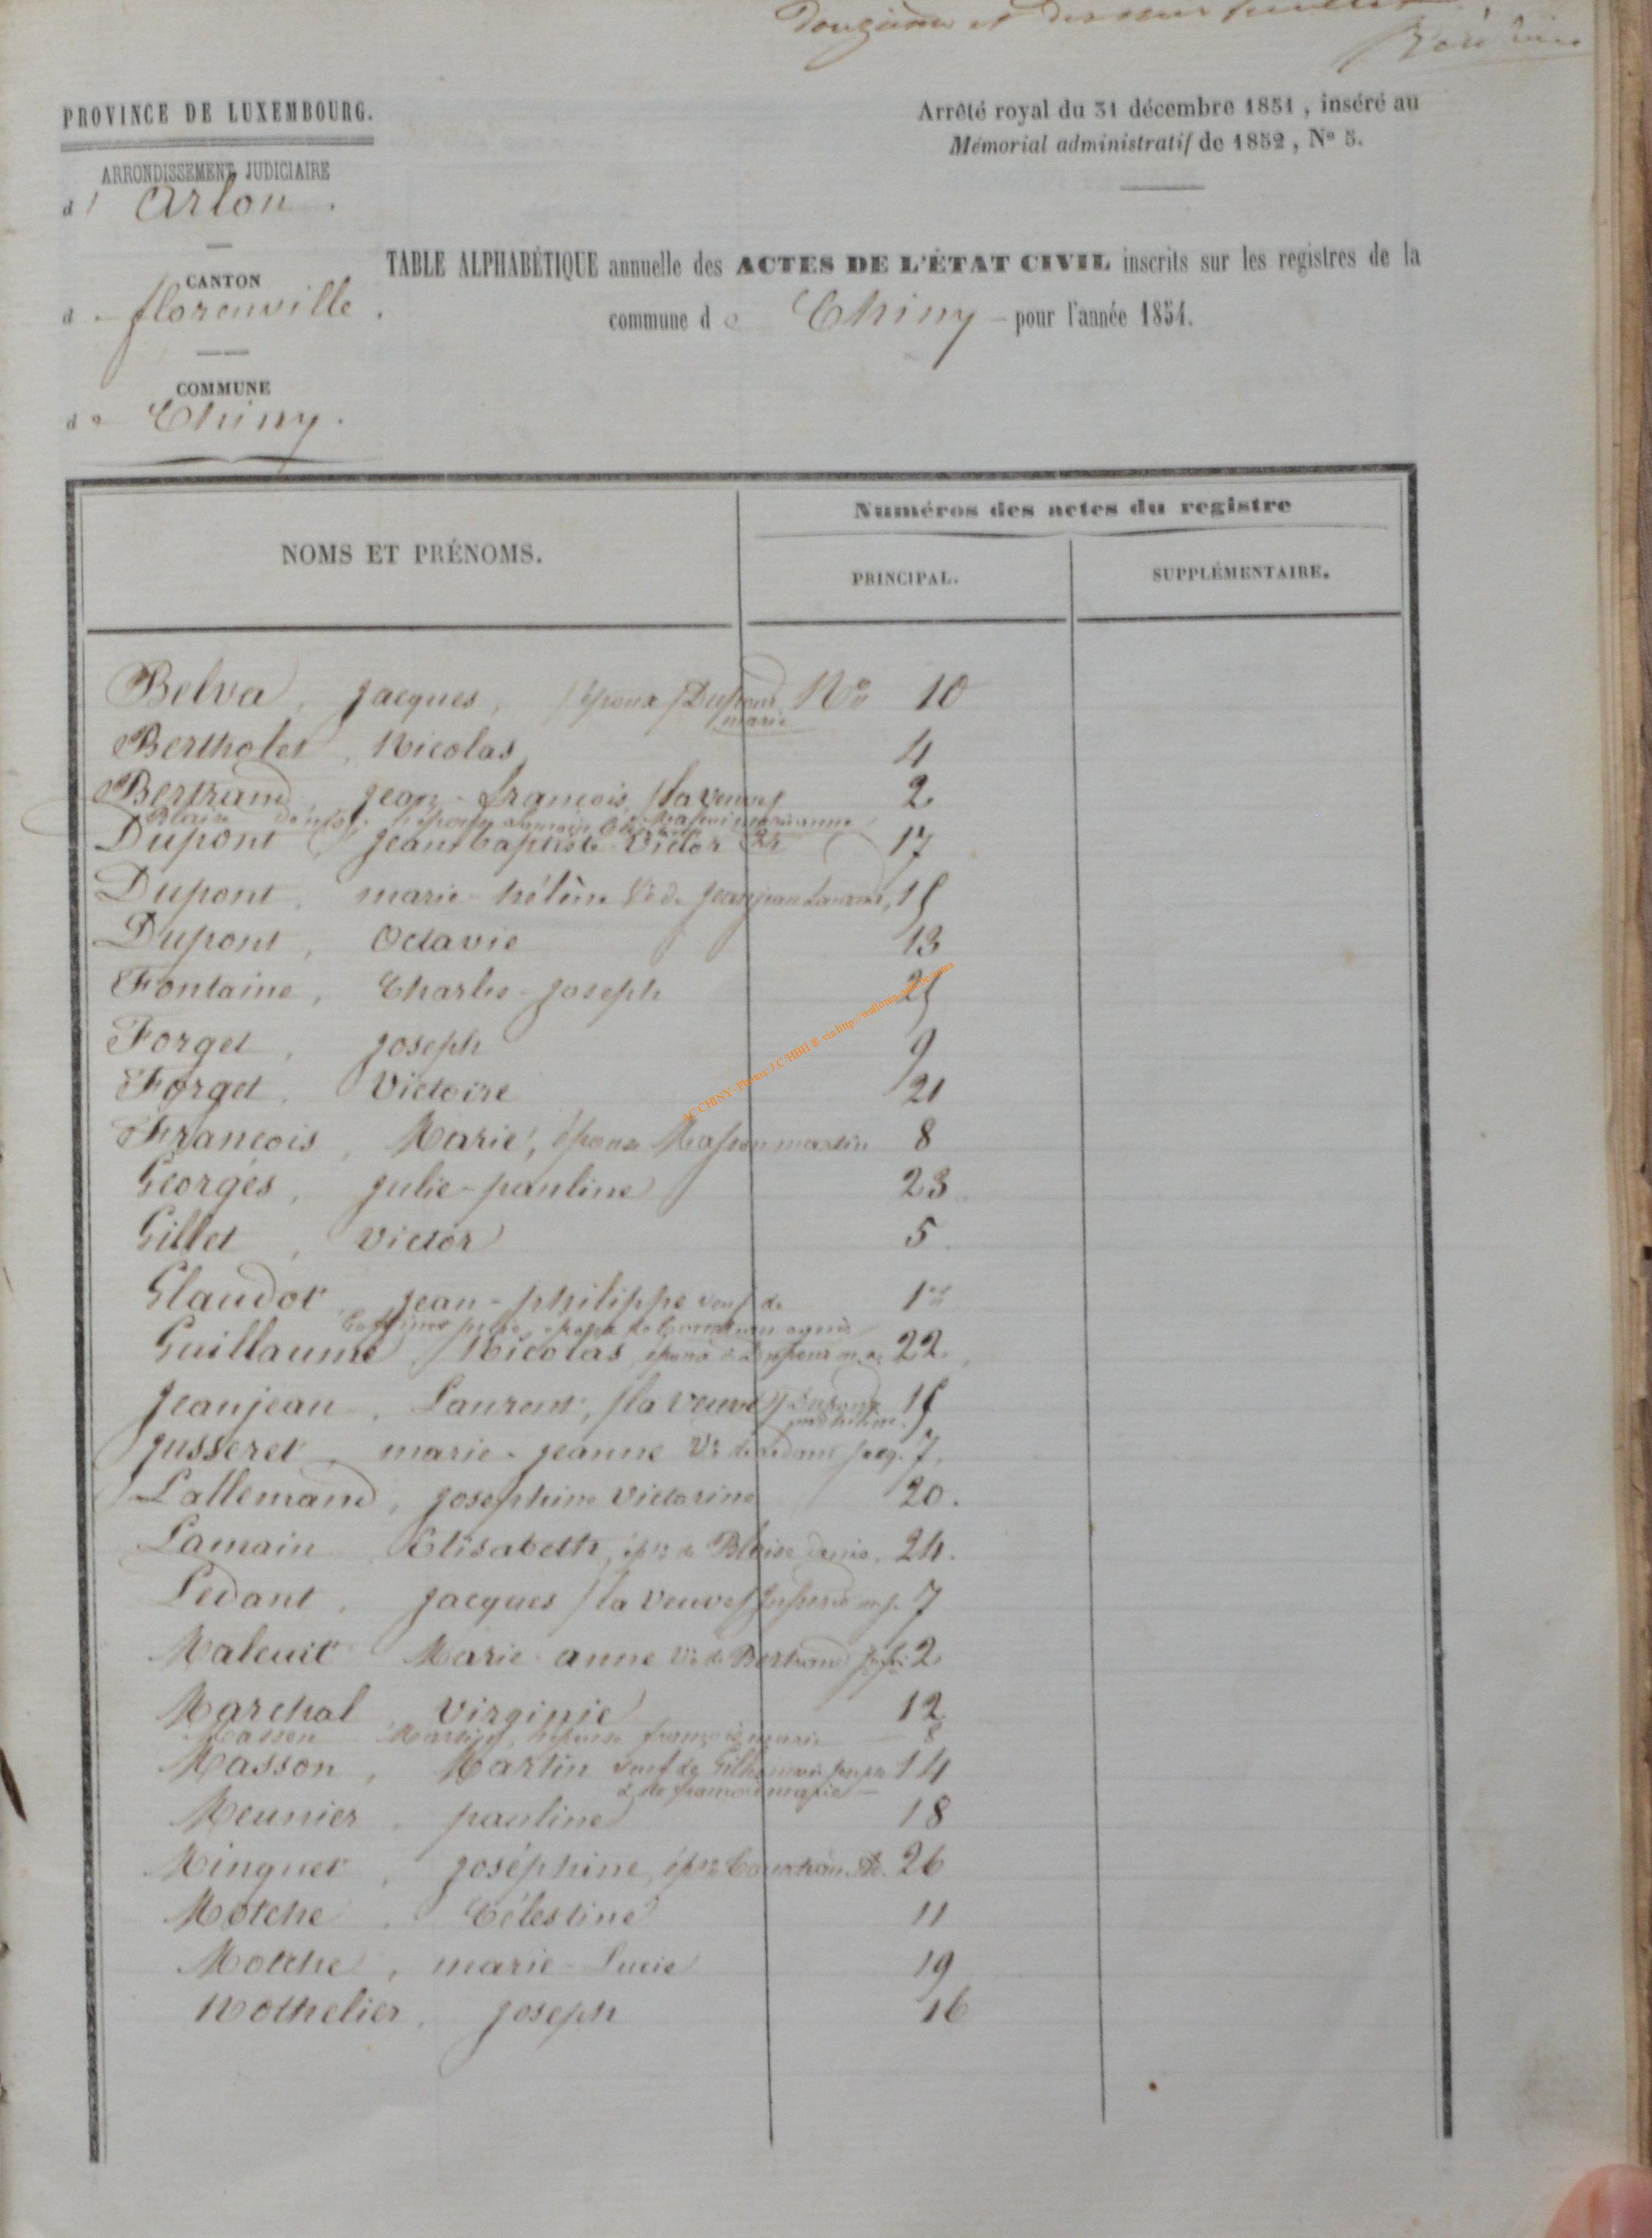 Douzième et dernier feuillet
PROVINCE DE LUXEMBOURG.
Arrêté royal du 31 décembre 1851, inséré au
Mémorial administratif de 1852, No 5.
ARRONDISSEMENT JUDICIAIRE
d' Arlon.
CANTON
d florenville.
COMMUNE
de Chiny.
TABLE ALPHABÉTIQUE annuelle des ACTES DE L'ÉTAT CIVIL inscrits sur les registres de la
commune de Chiny pour l'année 1854.
NOMS ET PRÉNOMS.
Numéros des actes du registre
PRINCIPAL.
SUPPLÉMENTAIRE.
Belva, jacques, époux Dupont marie No 10
Bertholet, Nicolas 4
Bertrand, jean-francois, la veuve 2
Dupont, jean baptiste Victor 17
Dupont, marie-hélène Ve de jeanjean Laurent, 15
Dupont, Octavie 13
Fontaine, Charles-joseph 25
Forget, joseph 9
Forget, Victoire 21
Francois, Marie, épouse Masson martin 8
Georges, julie-pauline 23
Gillet, victor 5
Glaudot jean-philippe veuf de 1er
Guillaume, Nicolas, époux 22
jeanjean, Laurent, la veuve Dupont 15
jusseret, marie-jeanne Ve de Ledant jacq. 7.
Lallemand, josephine Victorine 20.
Lamain, Elisabeth, épse de Blaise denis, 24.
Ledant, jacques la veuve jusseret m. j. 7
Maleuit Marie-anne Ve de Bertrand 2
Marchal, Virginie 12
Masson Martin, l'épouse françois marie 8
Masson, Martin veuf de 14
& de francois marie
Meunier, pauline 18
Minguet, joséphine, épse 26
Motche, Célestine 11
Motche, marie-Lucie 19
Nothelier, joseph 16